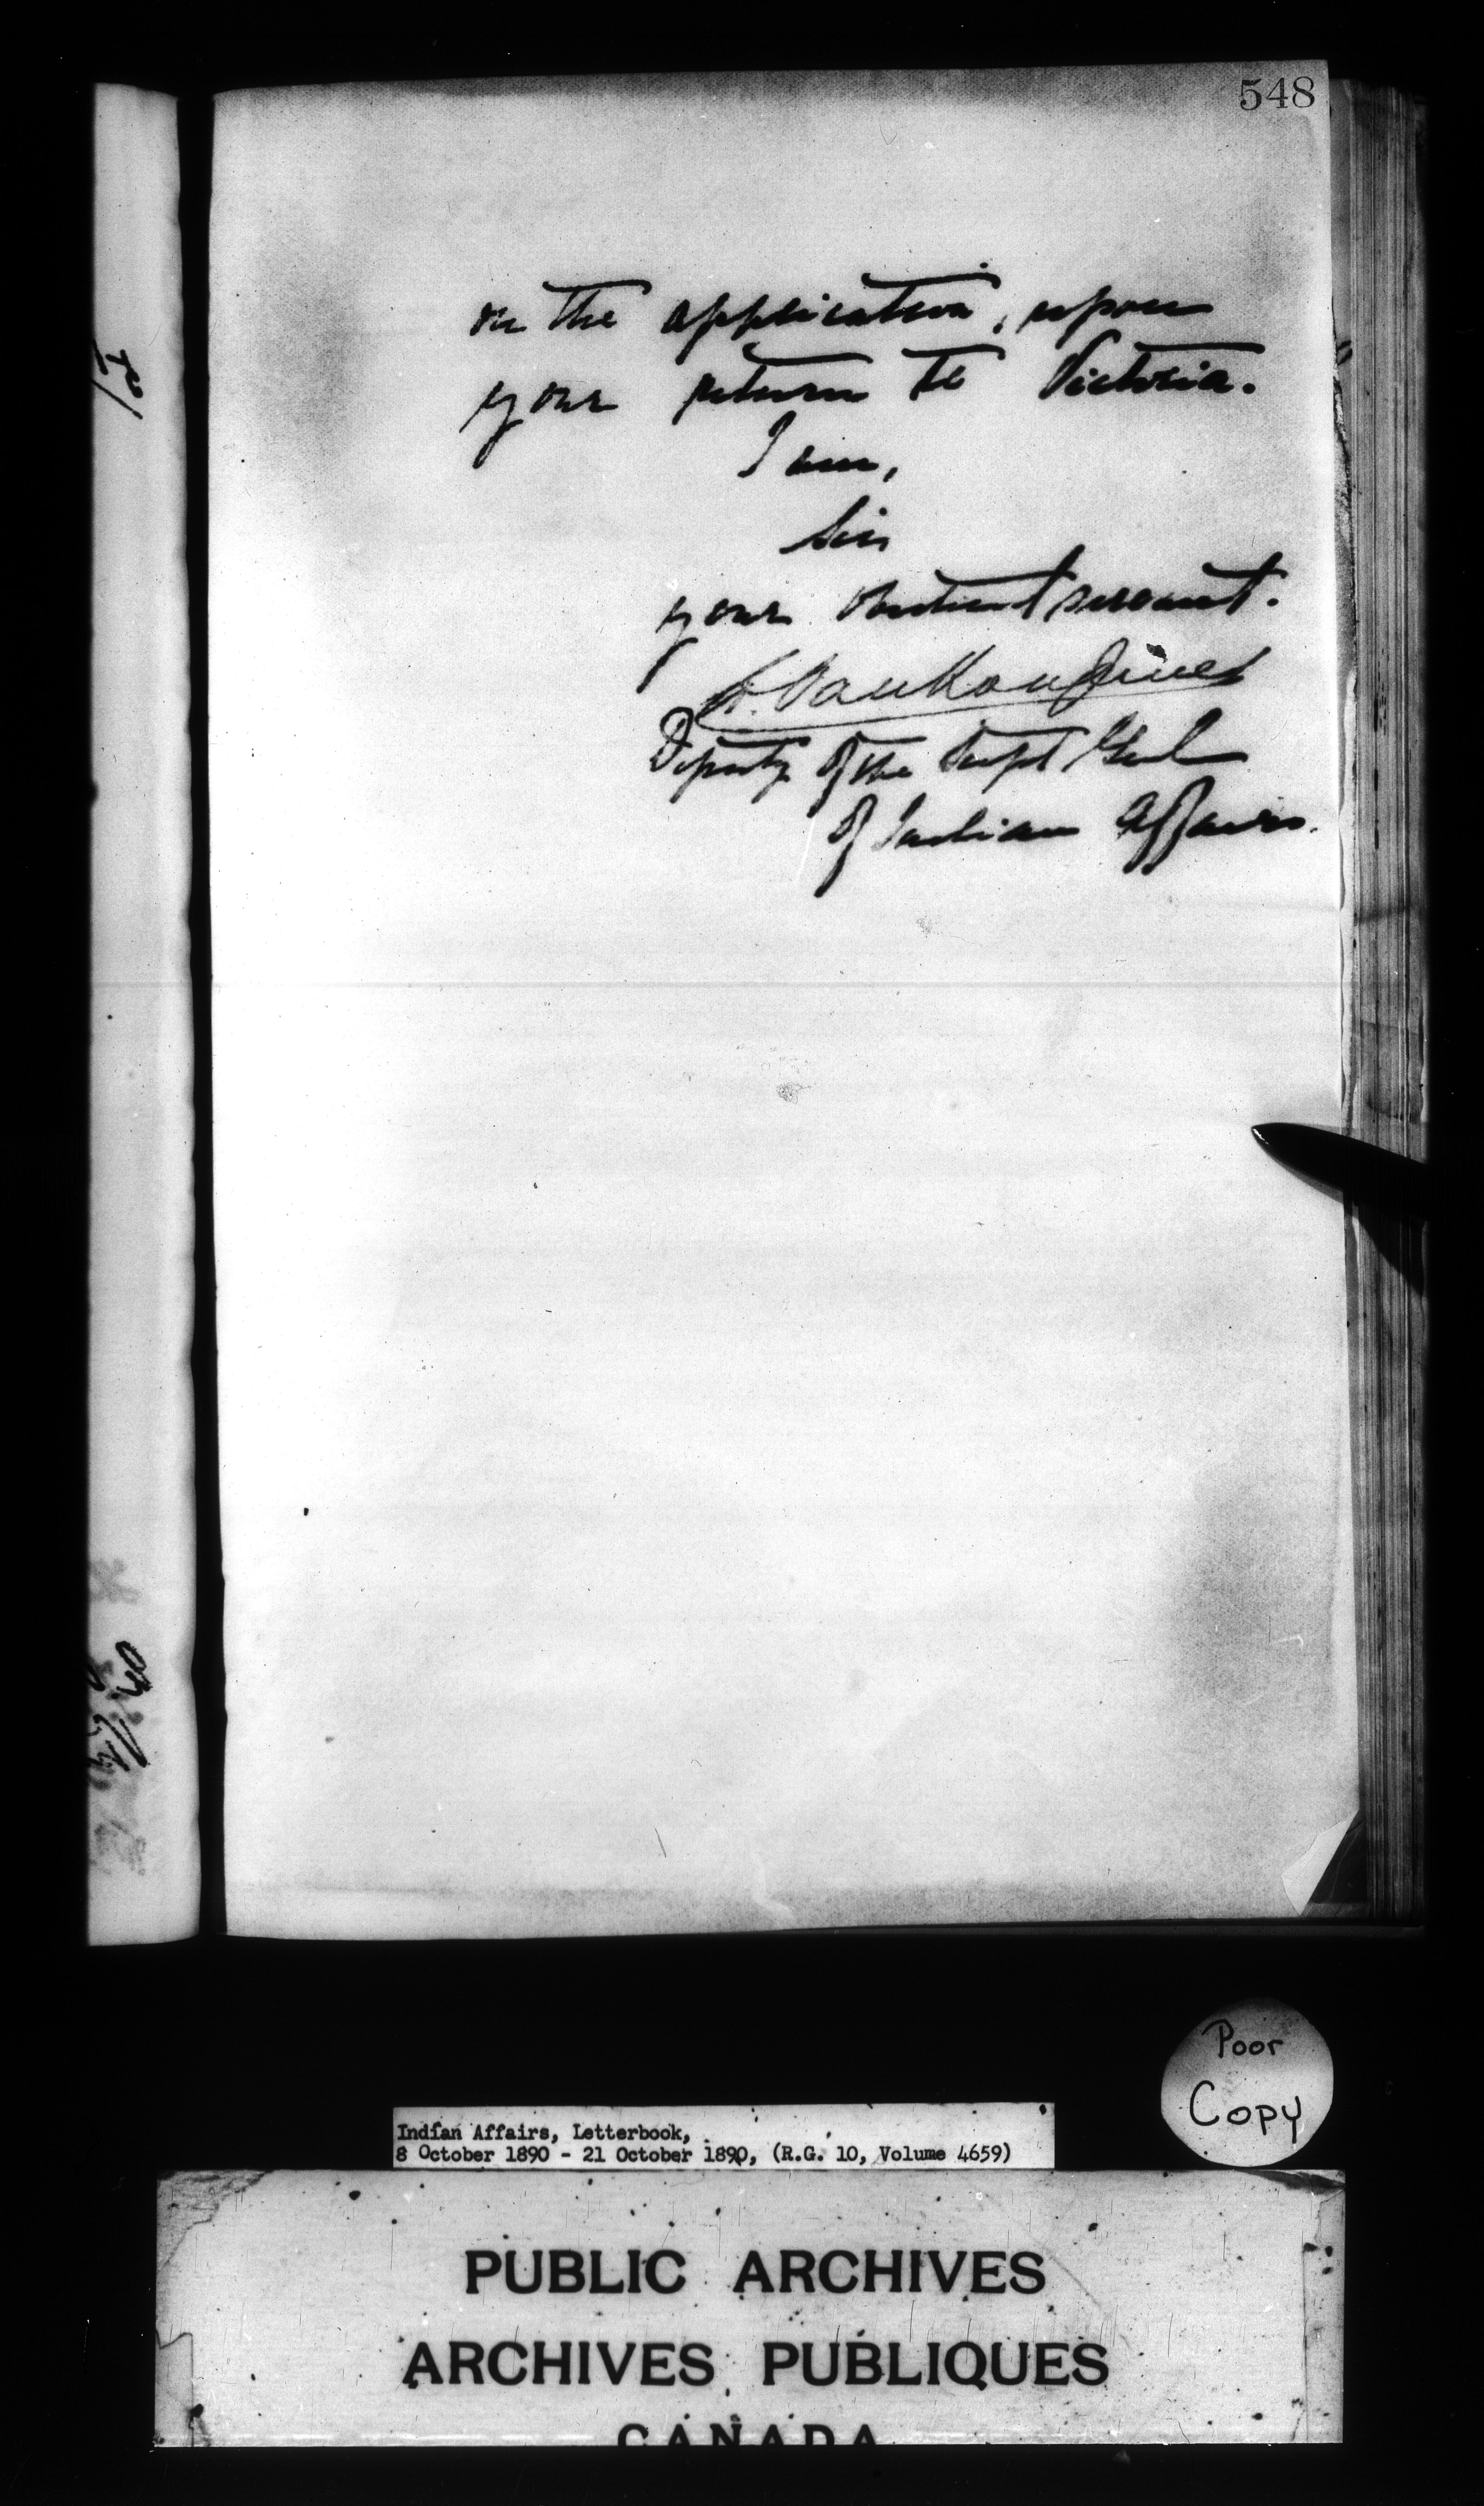 548
on the application, upon
your return to Victoria.
I am,
Sir
your obedient servant.
L. VanKoughnet
Deputy of the Supt Genl
of Indian Affairs.
Poor
Copy
Indian Affairs, Letterbook,
8 October 1890 - 21 October 1890, (R.G. 10, Volume 4659)
PUBLIC ARCHIVES
ARCHIVES PUBLIQUES
CANADA